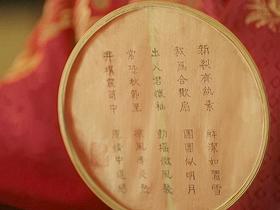 新裂齊紈素 鮮潔如霜雪
裁為合歡扇 團團似明月
出入君懷袖 動搖微風發
常恐秋節至 涼風奪炎熱
棄捐篋笥中 恩情中道絕